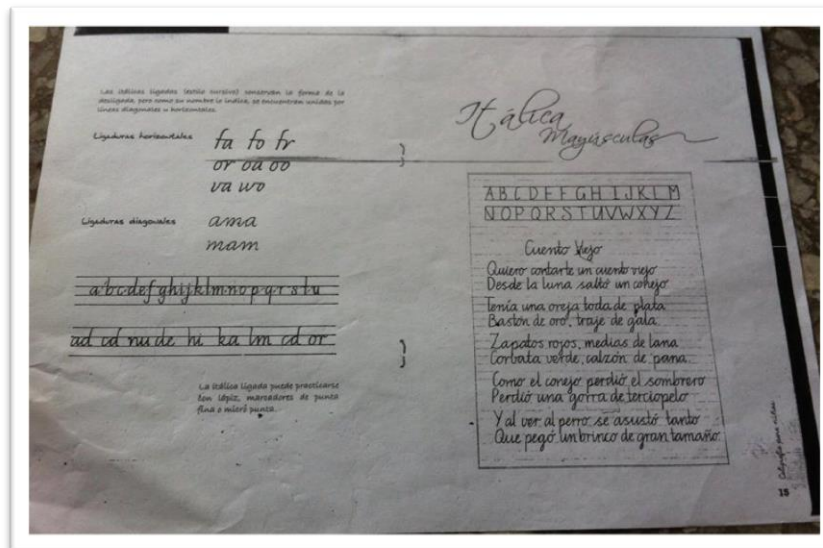 Las itálicas ligadas (estilo cursivo) conservan la forma de la
desligada, pero como su nombre lo indica, se encuentran unidas por
líneas diagonales u horizontales.
Ligaduras horizontales
fa fo fr
or oa oo
va wo
Ligaduras diagonales
ama
mam
a b c d e f g h i j k l m n o p q r s t u
ad cd nu de hi ka lm cd or
La itálica ligada puede practicarse
con lápiz, marcadores de punta
fina o micro punta.
Itálica
Mayúsculas
A B C D E F G H I J K L M
N O P Q R S T U V W X Y Z
Cuento Viejo
Quiero contarte un cuento viejo
Desde la luna saltó un conejo
Tenía una oreja toda de plata
Bastón de oro, traje de gala.
Zapatos rojos, medias de lana
Corbata verde, calzón de pana.
Como el conejo perdió el sombrero
Perdió una gorra de terciopelo
Y al ver al perro se asustó tanto
Que pegó un brinco de gran tamaño.
15 Caligrafía para niños